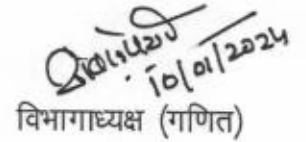 10/01/2024
विभागाध्यक्ष (गणित)